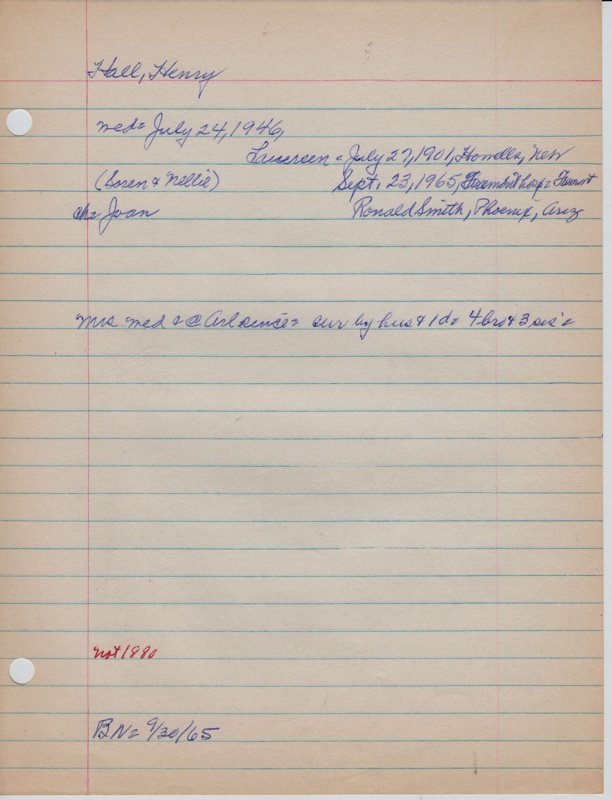 Hall, Henry
med= July 24, 1946,
Laursen = July 27, 1901, Howells, Neb
(Soren & Nellie) Sept. 23, 1965, Fremont hosp=
ch= Joan Ronald Smith, Phoenix, Ariz
Mrs med & @ Arl since= sur by hus & 1d= 4bro & 3 sis'=
not 1880
BN= 9/30/65